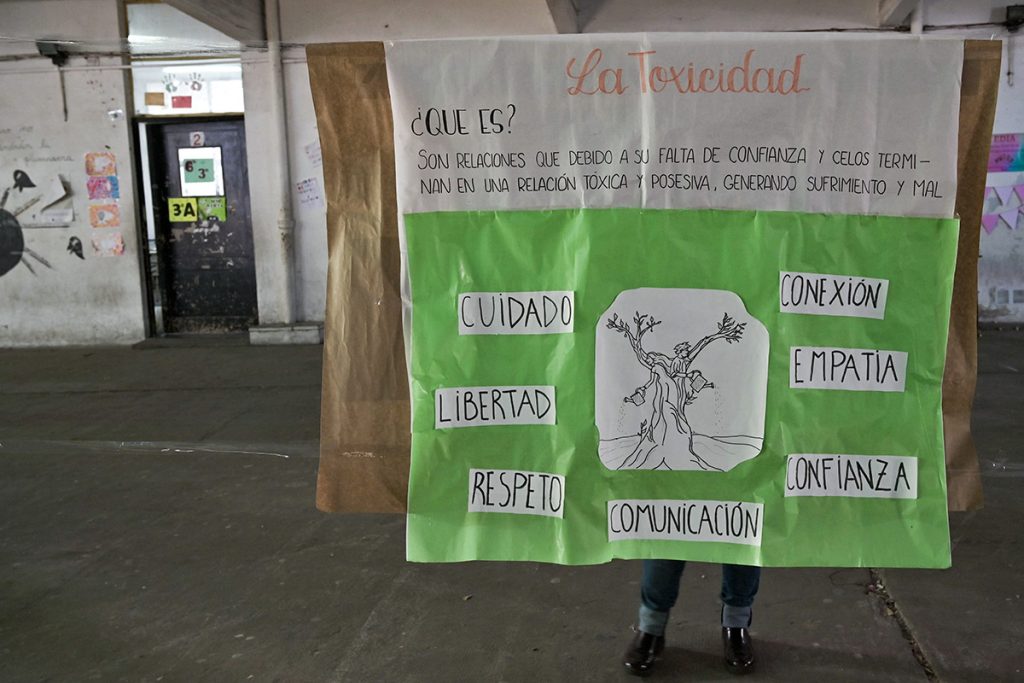 La Toxicidad
¿QUE ES?
SON RELACIONES QUE DEBIDO A SU FALTA DE CONFIANZA Y CELOS TERMI-
NAN EN UNA RELACIÓN TÓXICA Y POSESIVA, GENERANDO SUFRIMIENTO Y MAL
CUIDADO
CONEXIÓN
EMPATIA
LIBERTAD
CONFIANZA
RESPETO
COMUNICACIÓN
2
6° 3°
3°A